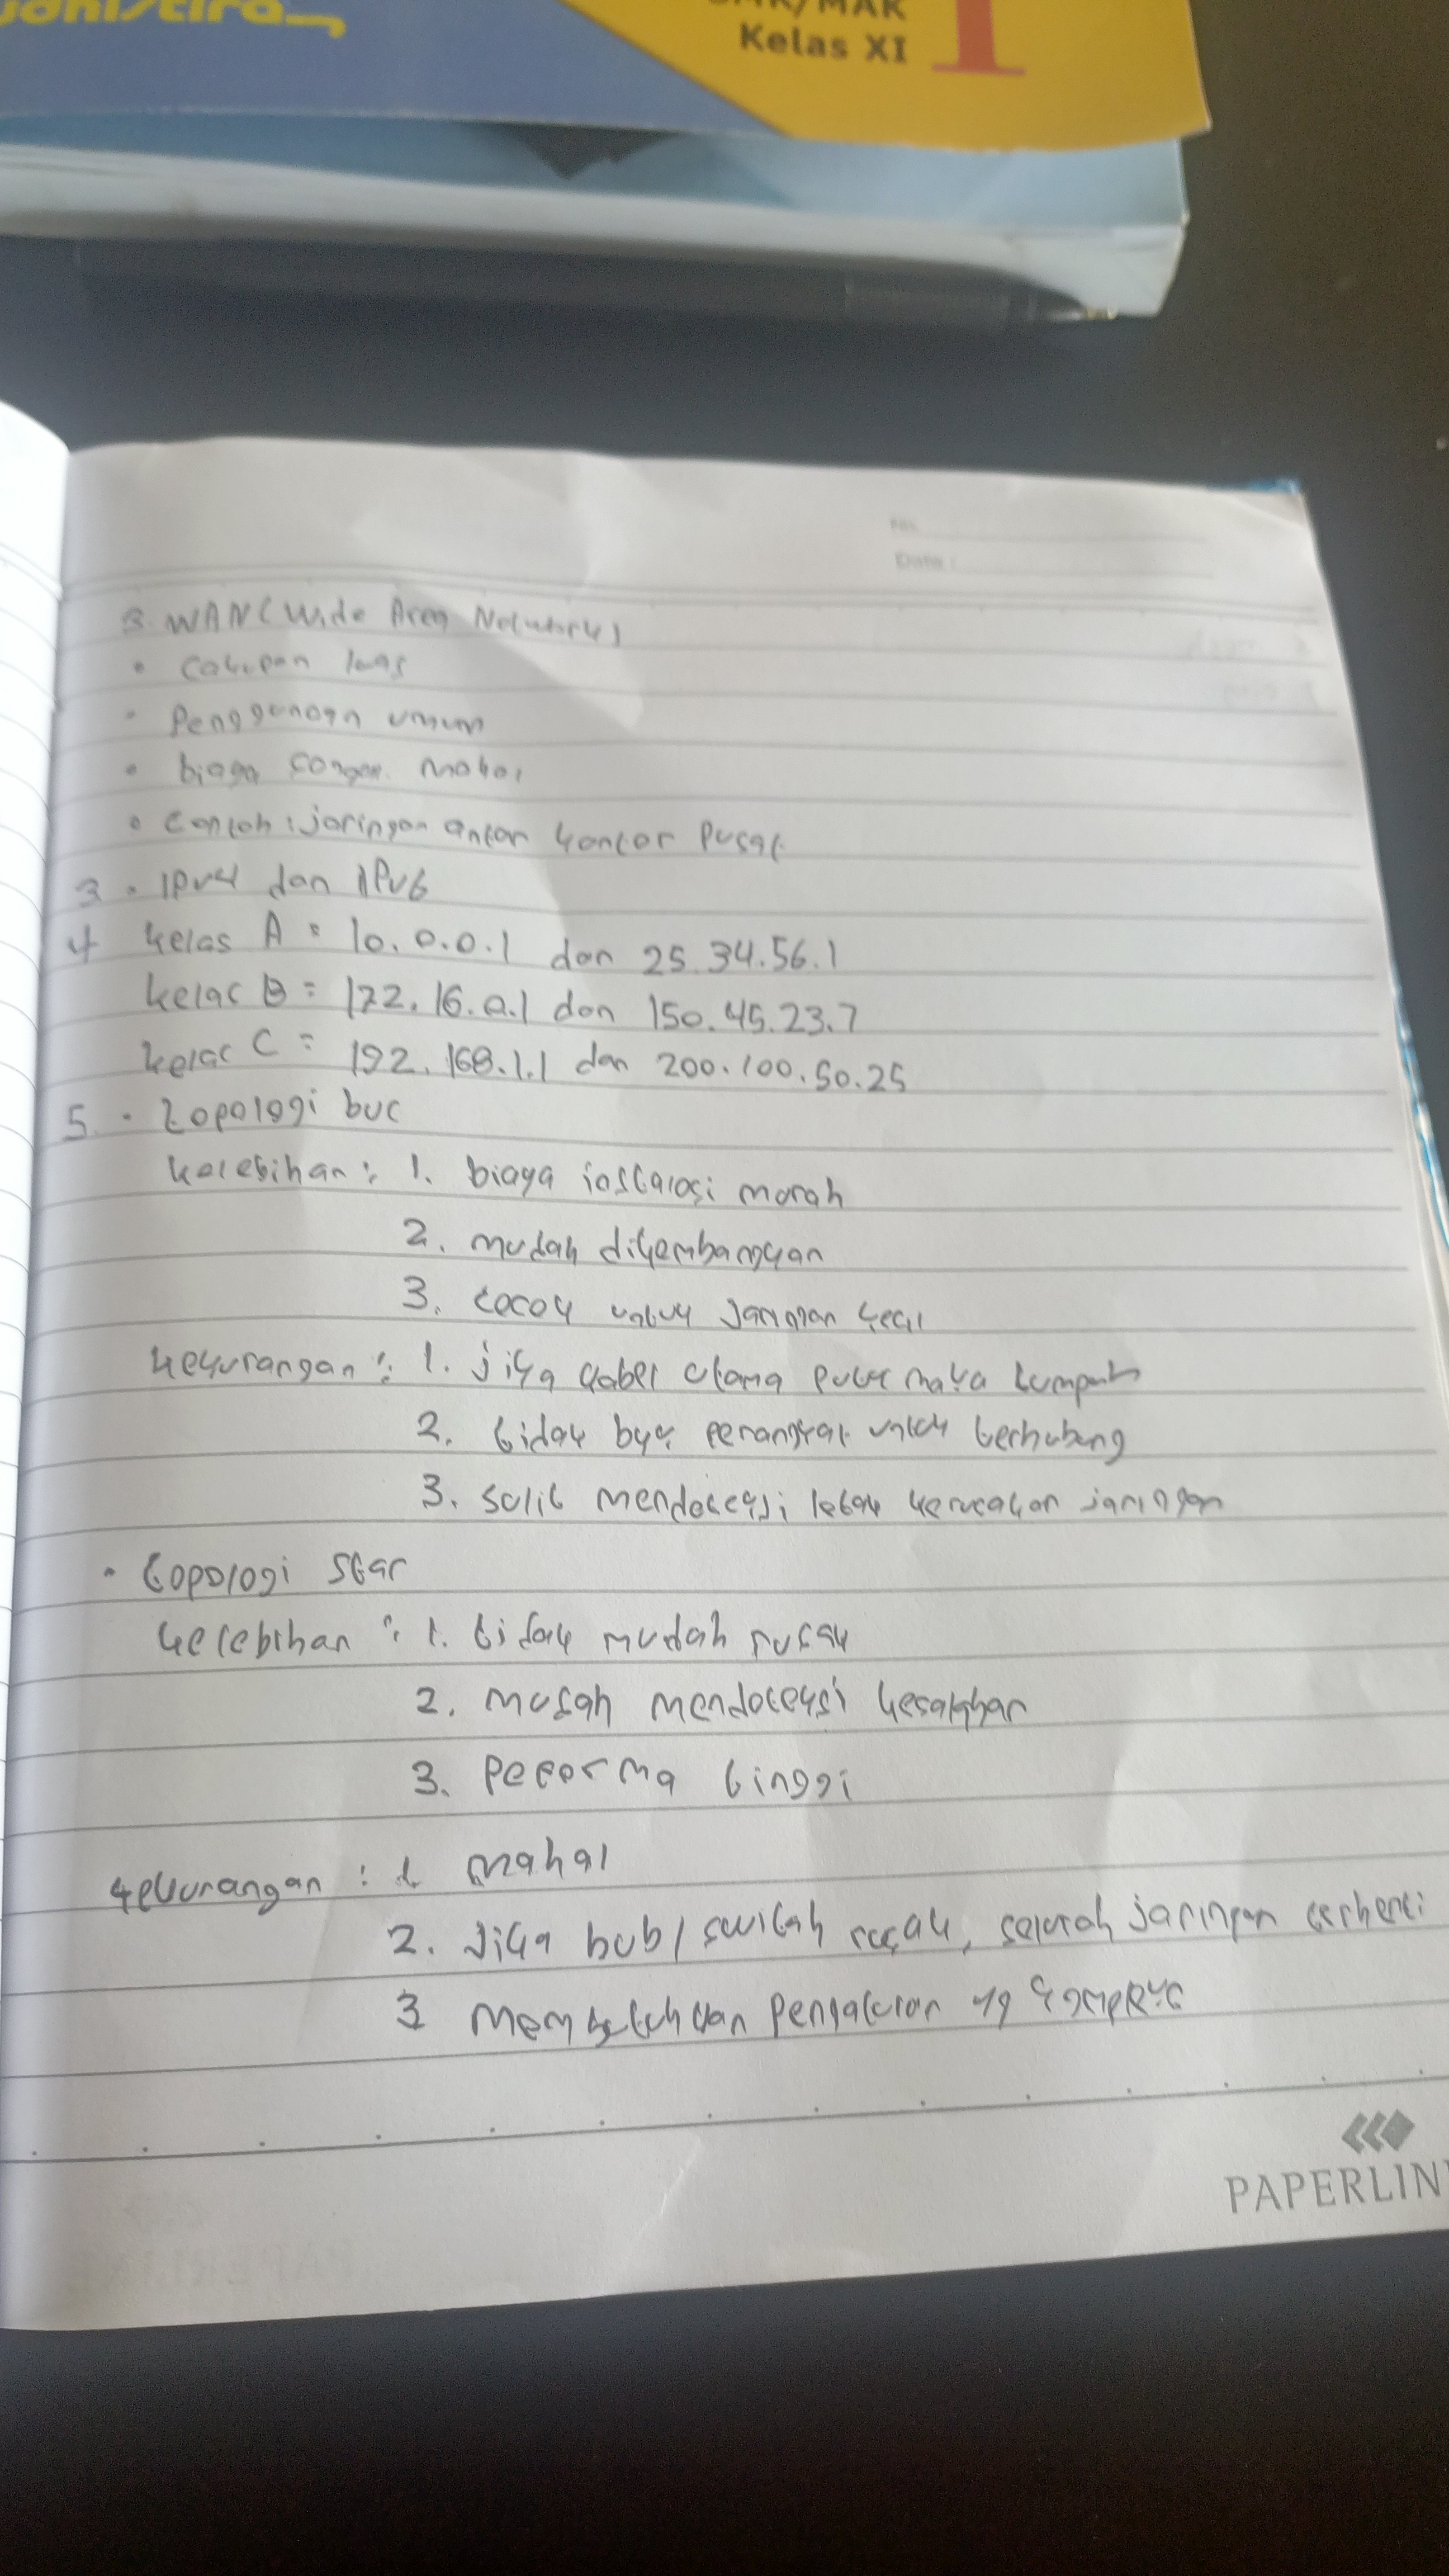 SMK/MAK
Kelas XI
1
No.
Date :
3. WAN (Wide Area Network)
• Cakupan luas
• Penggunaan umum
• biaya mahal
• Contoh : jaringan antar kantor Pusat
3 . IPv4 dan IPv6
4 kelas A = 10.0.0.1 dan 25.34.56.1
kelas B = 172.16.0.1 dan 150.45.23.7
kelas C = 192.168.1.1 dan 200.100.50.25
5. • topologi bus
kelebihan : 1. biaya instalasi murah
2. mudah dikembangkan
3. cocok untuk jaringan kecil
kekurangan : 1. jika kabel utama putus maka lumpuh
2. tidak perangkat untuk terhubung
3. sulit mendeteksi letak kerusakan jaringan
• topologi star
kelebihan : 1. tidak mudah rusak
2. mudah mendeteksi kesalahan
3. peforma tinggi
kekurangan : 1. mahal
2. Jika hub / switch rusak, seluruh jaringan terhenti
3 Membutuhkan Pengaturan yg
PAPERLIN